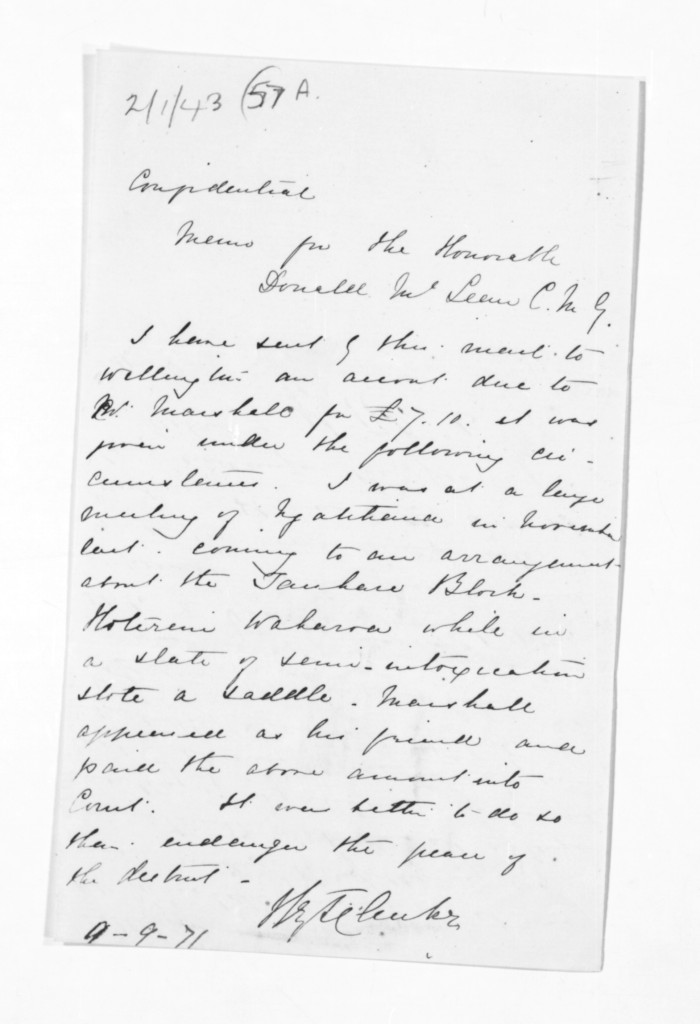 2/1/43 (57 A.
Confidential
Memo for the Honorable
Donald McLean C. M. G.
I have sent by this mail to
Wellington an account due to
W. Marshall for £7.10. it was
given under the following cir-
cumstances. I was at a large
meeting of Ngatitiaua in November
last. coming to an arrangement
about the Tauhara Block -
Hoterini Waharoa while in
a state of semi-intoxication
stole a saddle - Marshall
appeared as his friend and
paid the above amount into
Court. It was better to do so
than endanger the peace of
the district -
9 - 9 - 71